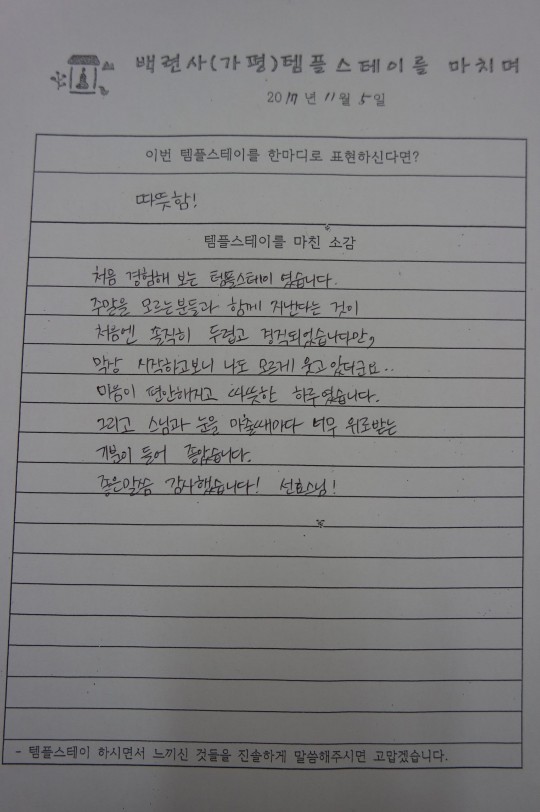 백련사(가평)템플스테이를 마치며
2017년 11월 5일
이번 템플스테이를 한마디로 표현하신다면?
따뜻함!
템플스테이를 마친 소감
처음 경험해 보는 템플스테이 였습니다.
주말을 모르는분들과 함께 지낸다는 것이
처음엔 솔직히 두렵고 경직되었습니다만,
막상 시작하고보니 나도 모르게 웃고 있더군요..
마음이 편안해지고 따뜻한 하루였습니다.
그리고 스님과 눈을 마출때마다 너무 위로받는
기분이 들어 좋았습니다.
좋은말씀 감사했습니다! 선효스님!
- 템플스테이 하시면서 느끼신 것들을 진솔하게 말씀해주시면 고맙겠습니다.